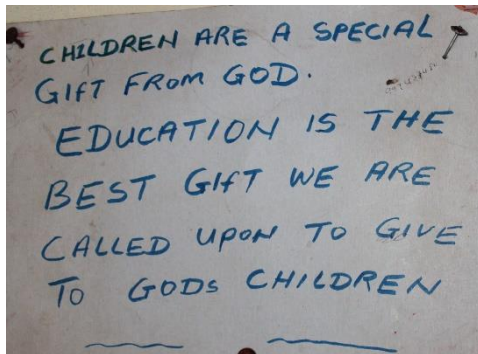 CHILDREN ARE A SPECIAL
GIFT FROM GOD.
EDUCATION IS THE
BEST GIFT WE ARE
CALLED UPON TO GIVE
TO GODS CHILDREN